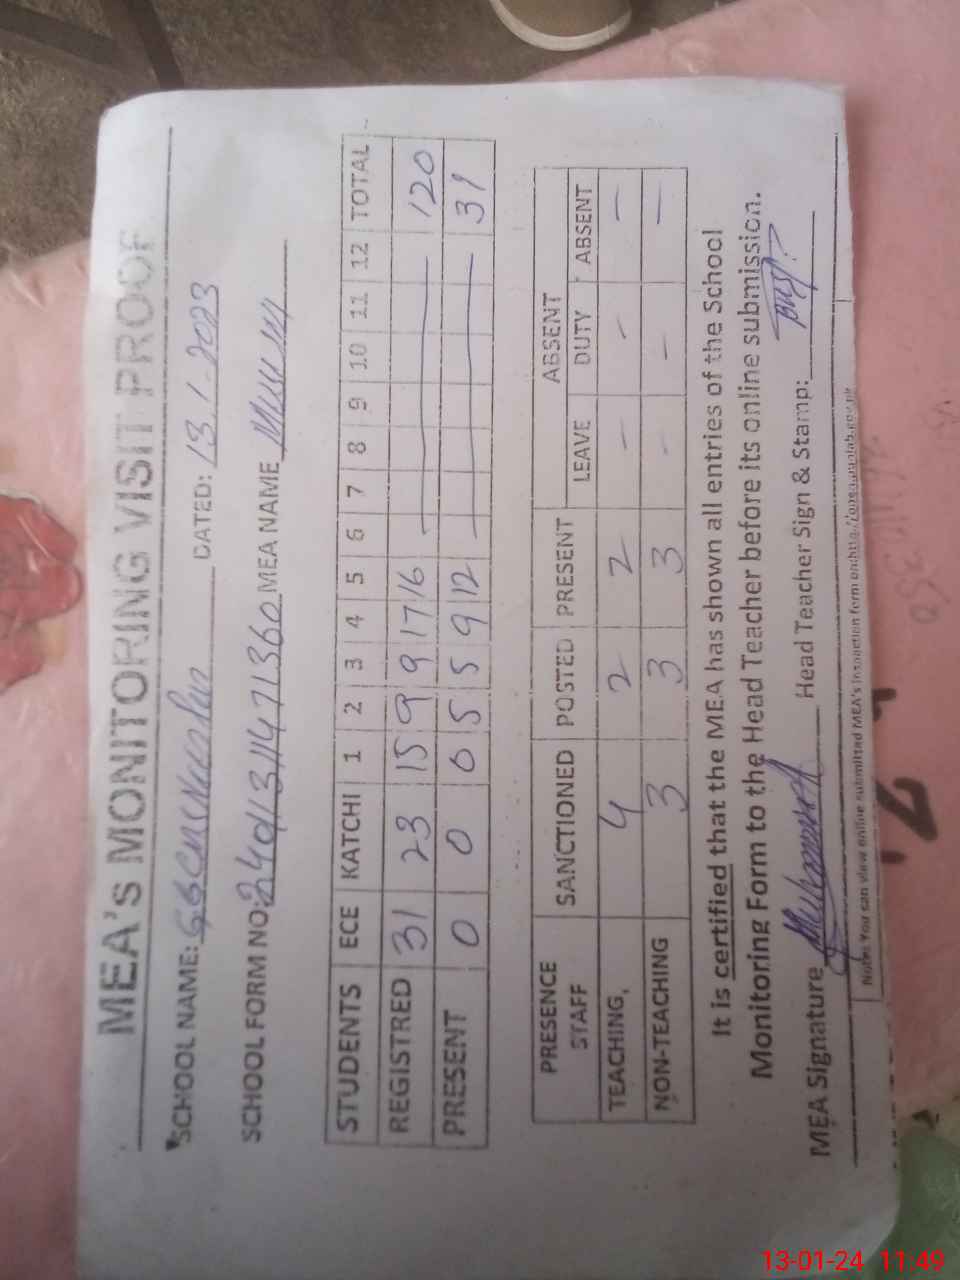 MEA's MONITORING VISIT PROOF
SCHOOL NAME: DATED: 13.1.2023
SCHOOL FORM NO: MEA NAME
STUDENTS ECE KATCHI 1 2 3 4 5 6 7 8 9 10 11 12 TOTAL
REGISTRED 31 23 15 9 9 17 16 — 120
PRESENT 0 0 0 5 5 9 12 — 31
PRESENCE STAFF SANCTIONED POSTED PRESENT ABSENT
LEAVE DUTY ABSENT
TEACHING, 4 2 2 – – –
NON-TEACHING 3 3 3 – – –
It is certified that the MEA has shown all entries of the School
Monitoring Form to the Head Teacher before its online submission.
MEA Signature Head Teacher Sign & Stamp:
Note: You can view online submitted MEA's inspection form on:
13-01-24 11:49